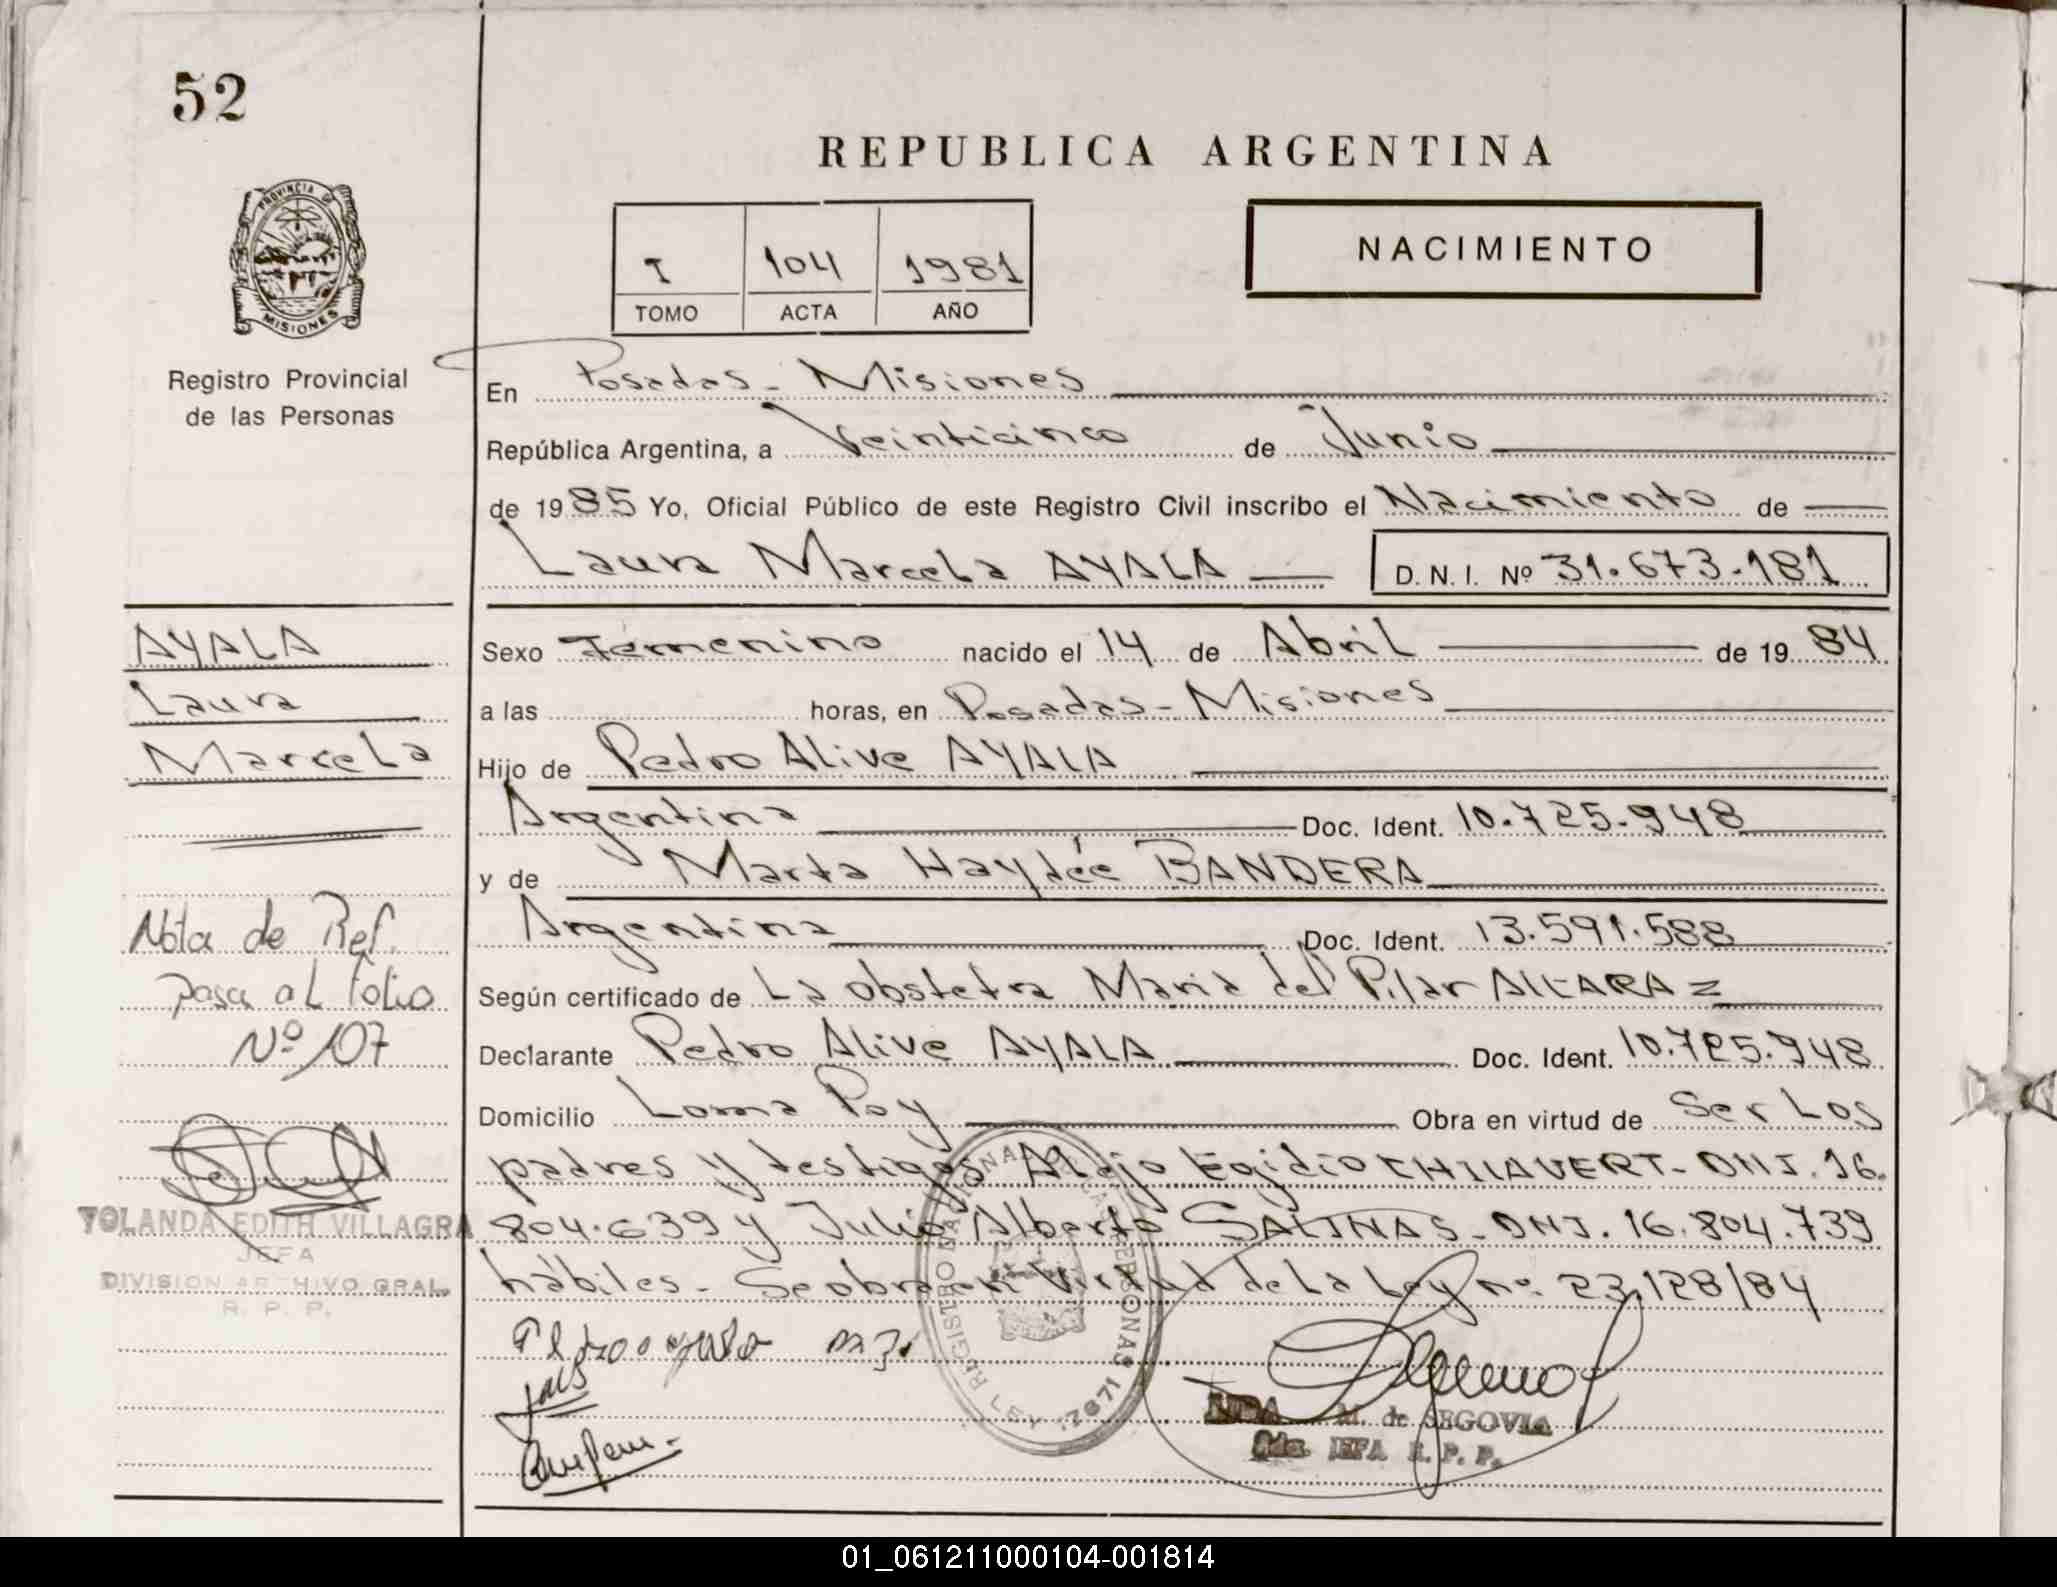 52
REPUBLICA ARGENTINA
PROVINCIA DE
MISIONES
Registro Provincial
de las Personas
I 104 1981
TOMO ACTA AÑO
NACIMIENTO
En Posadas - Misiones
República Argentina, a Veinticinco de Junio
de 1985 Yo, Oficial Público de este Registro Civil inscribo el Nacimiento de
Laura Marcela AYALA D.N.I. Nº 31.673.181
AYALA
Laura
Marcela
Sexo Femenino nacido el 14 de Abril de 1984
a las horas, en Posadas - Misiones
Hijo de Pedro Alive AYALA
Argentina Doc. Ident. 10.725.948
y de Marta Haydée BANDERA
Argentina Doc. Ident. 13.591.588
Según certificado de La obstetra Maria del Pilar ALCARAZ
Declarante Pedro Alive AYALA Doc. Ident. 10.725.948
Domicilio Loma Poy Obra en virtud de Ser Los
padres y testigos Alejo Egidio CHILAVERT - DNI. 16.
804.639 y Julio Alberto SALINAS - DNI. 16.804.739
hábiles - Se obra en Virtud de La Ley nº 23.128/84
Nota de Ref.
pasa al folio
Nº 107
YOLANDA EDITH VILLAGRA
JEFA
DIVISION ARCHIVO GRAL.
R. P. P.
REGISTRO NACIONAL DE LAS PERSONAS
LEY 17671
M. de SEGOVIA
JEFA R. P. P.
01_061211000104-001814